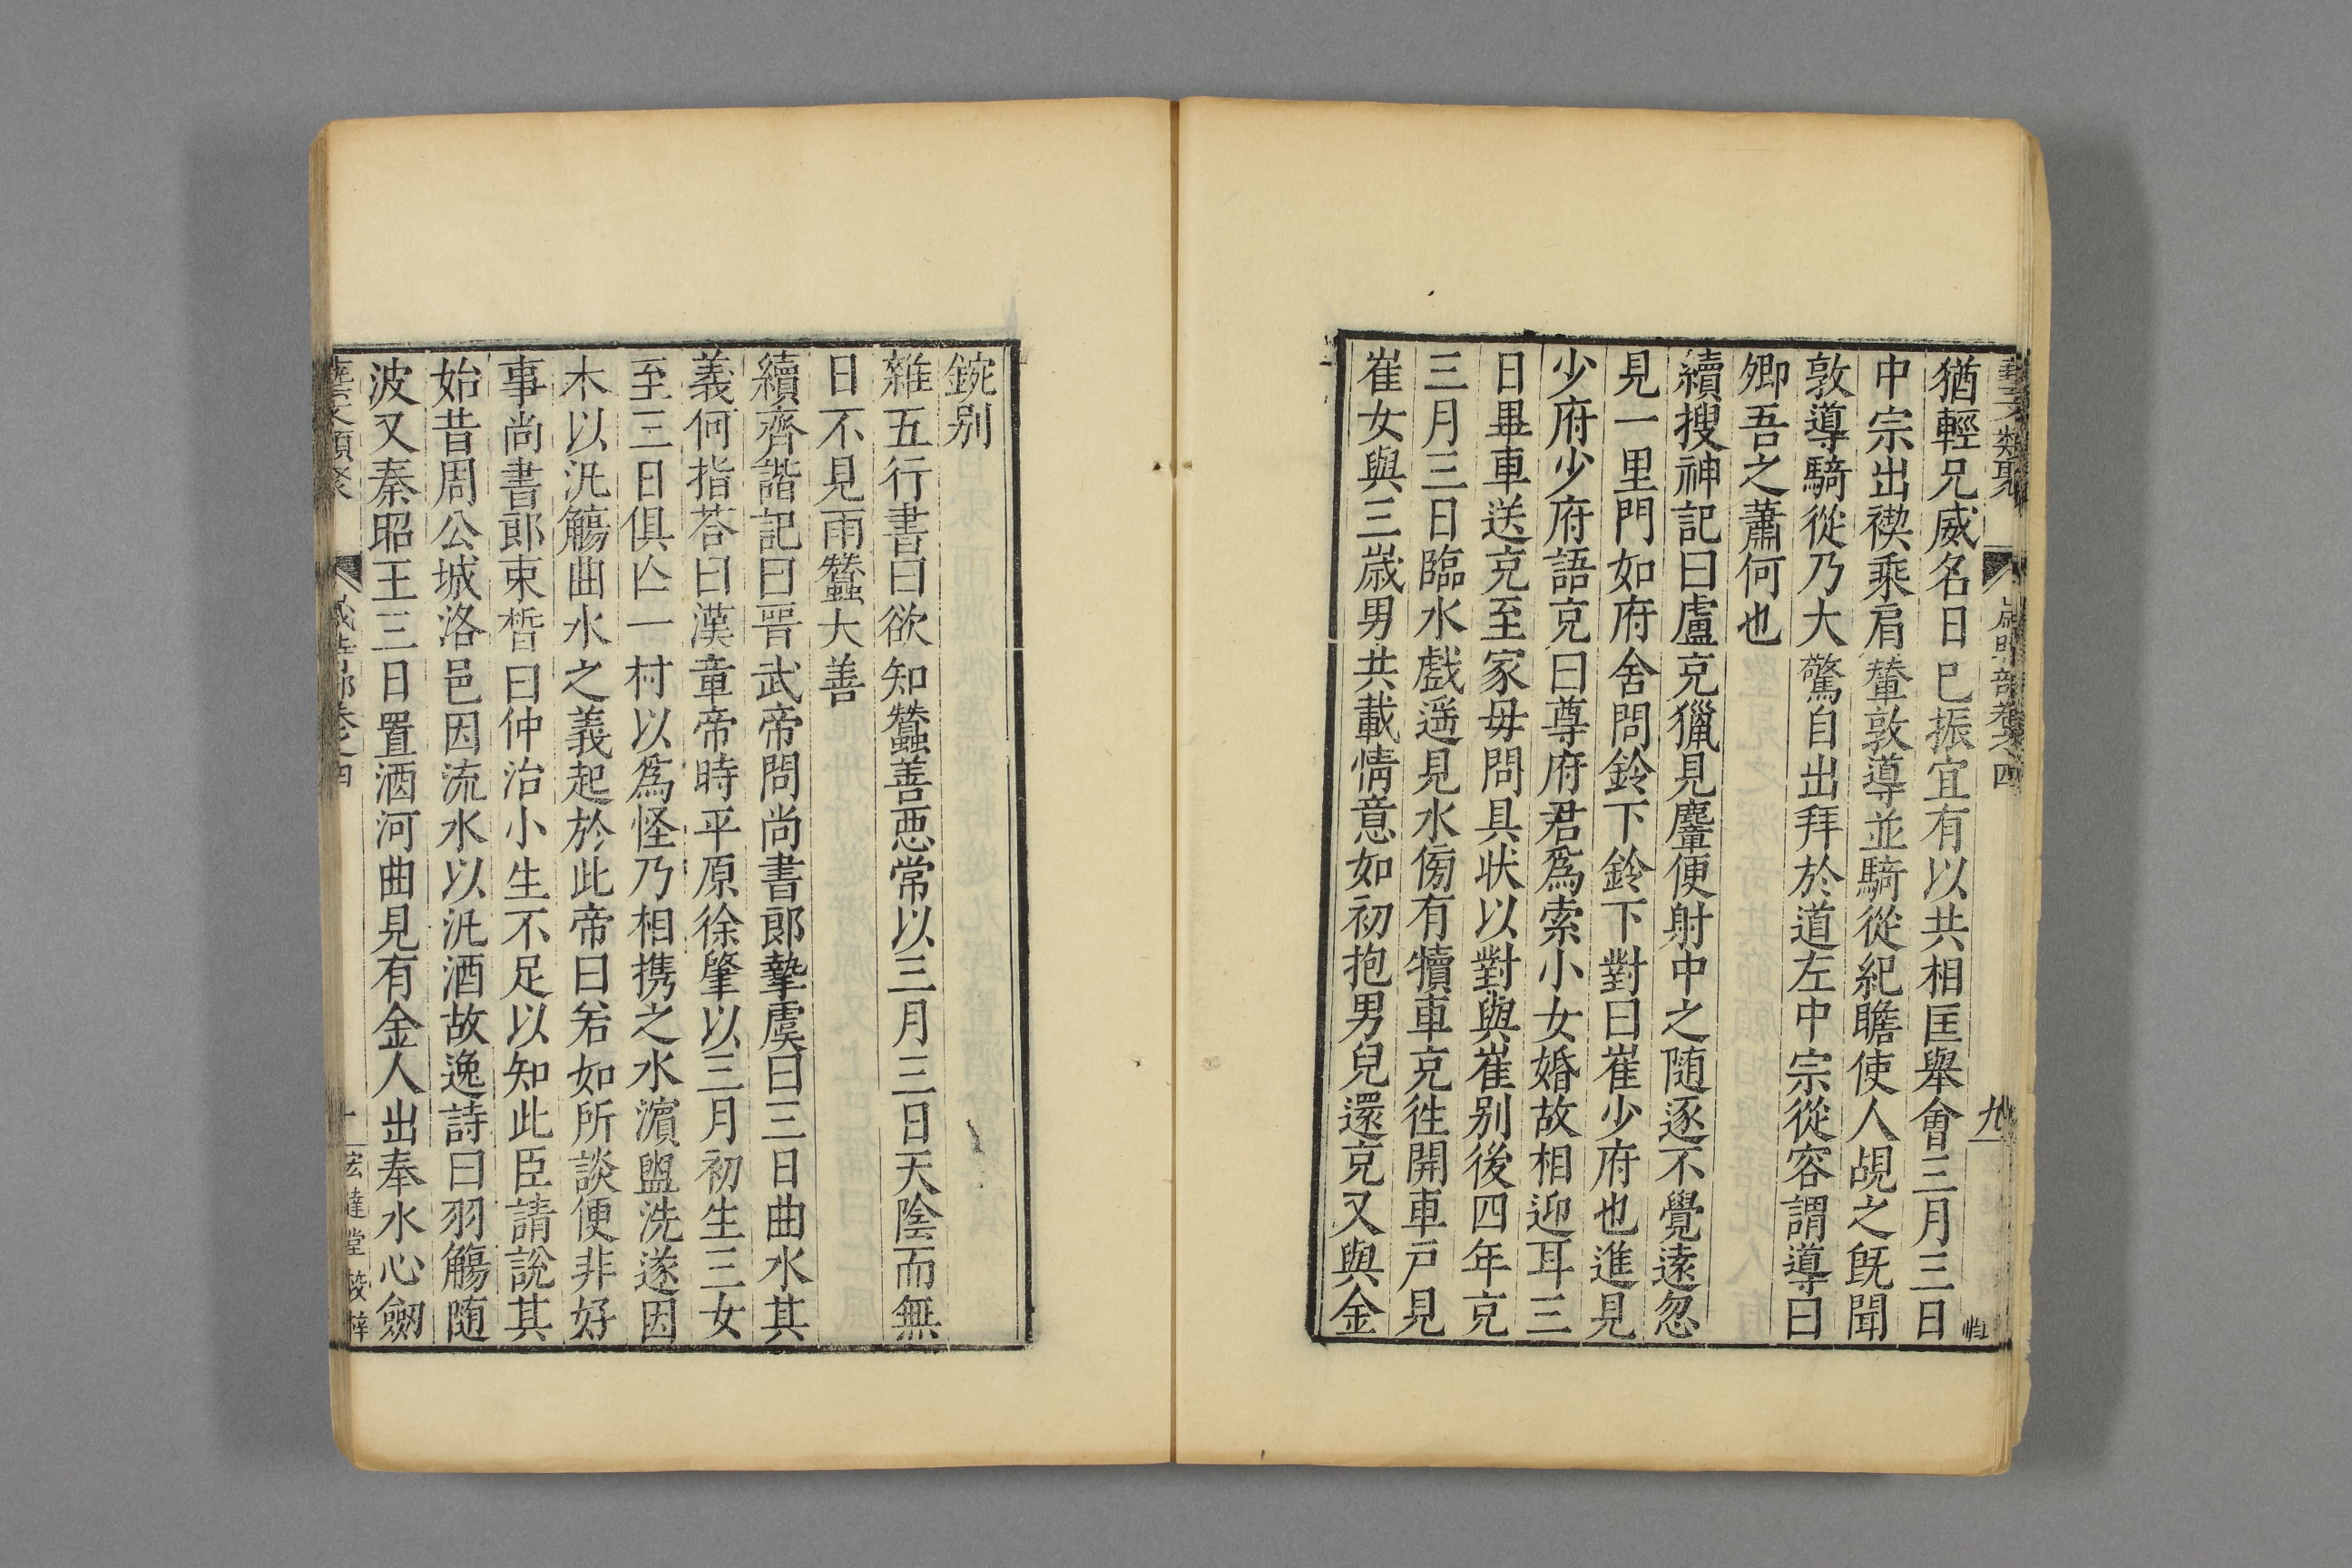 藝文類聚 歲時部卷之四 九
猶輕兄威名日已振宜有以共相匡舉會三月三日
中宗出禊乘肩輦敦導並騎從紀瞻使人覘之旣聞
敦導騎從乃大驚自出拜於道左中宗從容謂導曰
卿吾之蕭何也
續搜神記曰盧充獵見麞便射中之随逐不覺遠忽
見一里門如府舍問鈴下鈴下對曰崔少府也進見
少府少府語充曰尊府君爲索小女婚故相迎耳三
日畢車送充至家毋問具狀以對與崔别後四年充
三月三日臨水戲遥見水傍有犢車充徃開車戸見
崔女與三歲男共載情意如初抱男兒還充又與金
鋺别
雜五行書曰欲知蠶善惡常以三月三日天陰而無
日不見雨蠶大善
續齊諧記曰晋武帝問尚書郎摯虞曰三日曲水其
義何指荅曰漢章帝時平原徐肇以三月初生三女
至三日俱亾一村以爲怪乃相携之水濵盥洗遂因
木以汎觴曲水之義起於此帝曰若如所談便非好
事尚書郎束晳曰仲治小生不足以知此臣請說其
始昔周公城洛邑因流水以汎酒故逸詩曰羽觴随
波又秦昭王三日置酒河曲見有金人出奉水心劒
藝文類聚 歲時部卷之四 十 宏達堂校梓